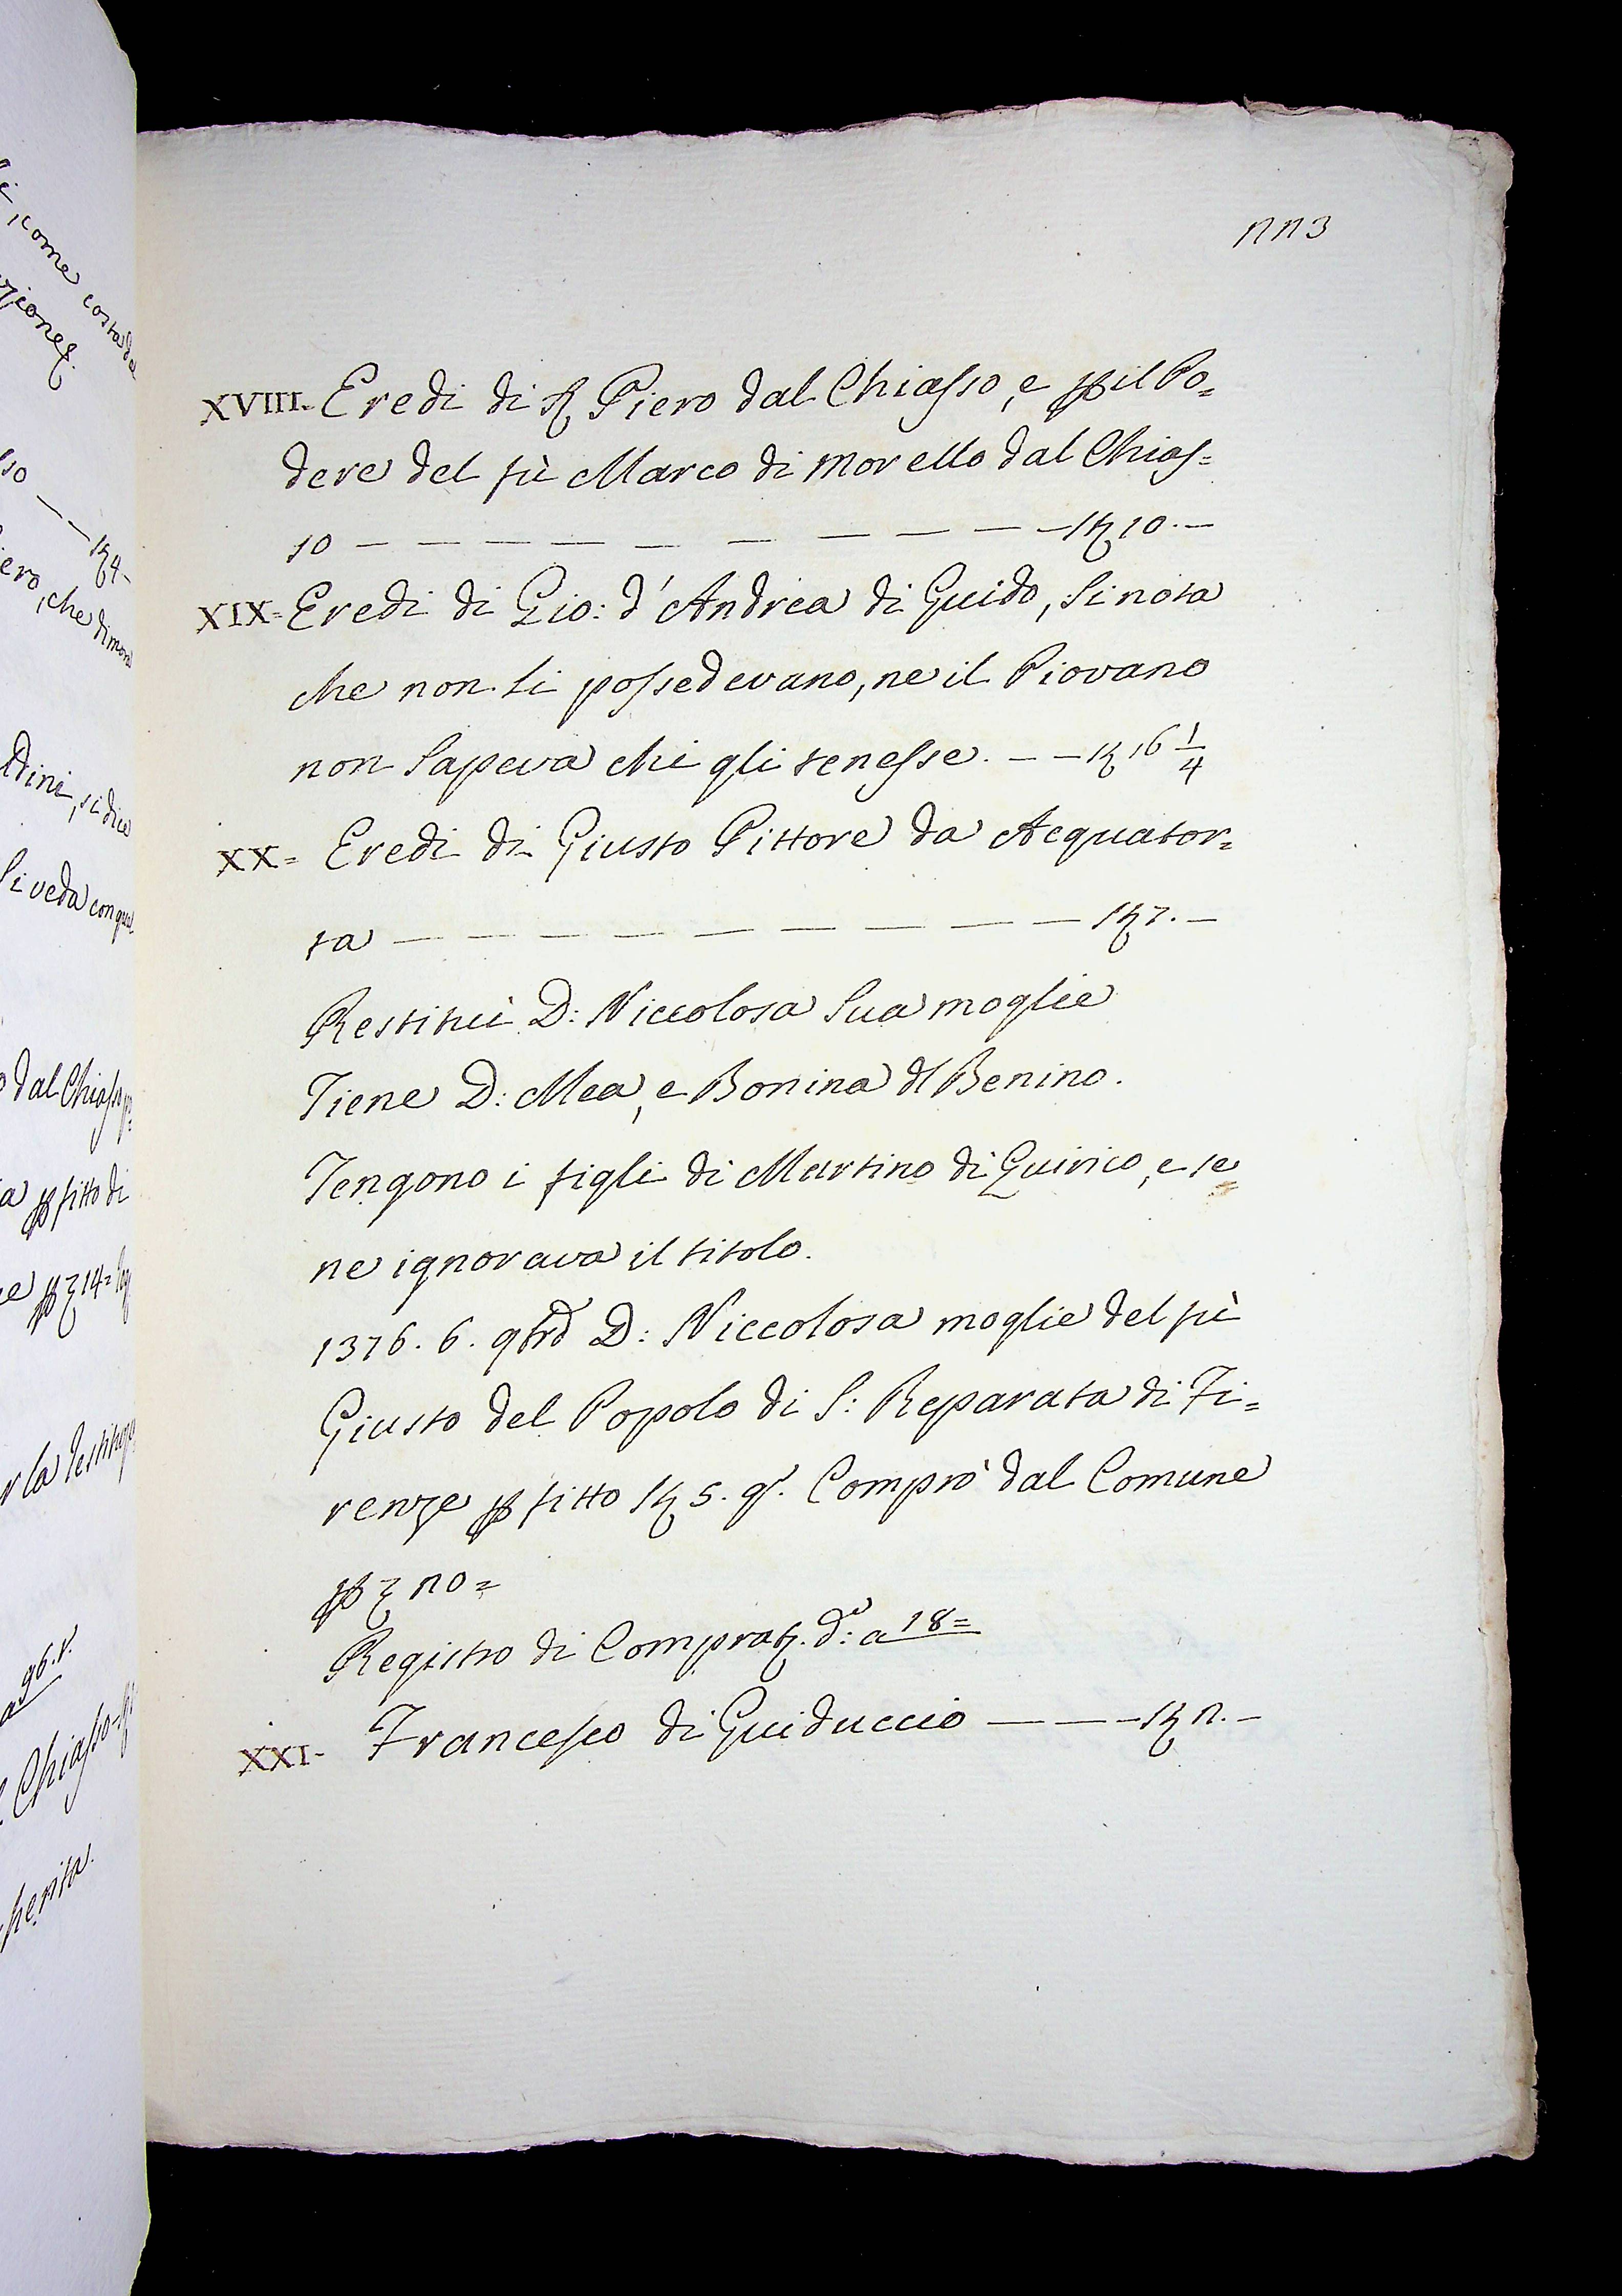 223
XVIII. Eredi di S. Piero dal Chiasso, e p il Po=
dere del fù Marco di Morello dal Chias=
so — — — — — — — — — — St 10. —
XIX= Eredi di Gio: d'Andrea di Guido, Si nota
che non li possedevano, ne il Piovano
non Sapeva chi gli tenesse. — — St 16 1/4
XX= Eredi di Giusto Pittore da Acquator=
ta — — — — — — — — — St 7. —
Restituì D: Niccolosa Sua moglie
Tiene D: Mea, e Bonina di Benino.
Tengono i figli di Martino di Quirico, e se
ne ignorava il titolo.
1376. 6. 9bre D: Niccolosa moglie del fù
Giusto del Popolo di S: Reparata di Fi=
renze p fitto St 5. gr. Comprò dal Comune
p 20=
Registro di Comprat. do: a 18=
XXI- Francesco di Guiduccio — — — St 2. —
, come costa da
zione
so — — St 4-
ero, che dimora
dini, si dice
Si veda con que
dal Chiasso
a p fitto di
e p 14=
r la
a 96. t.
Chiasso
herita.